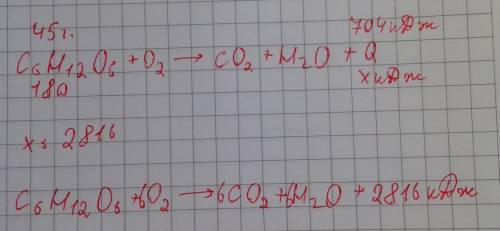 45г. 704 кДж
C6H12O6 + O2 → CO2 + H2O + Q
180 x кДж
x = 2816
C6H12O6 + 6O2 → 6CO2 + 6H2O + 2816 кДж